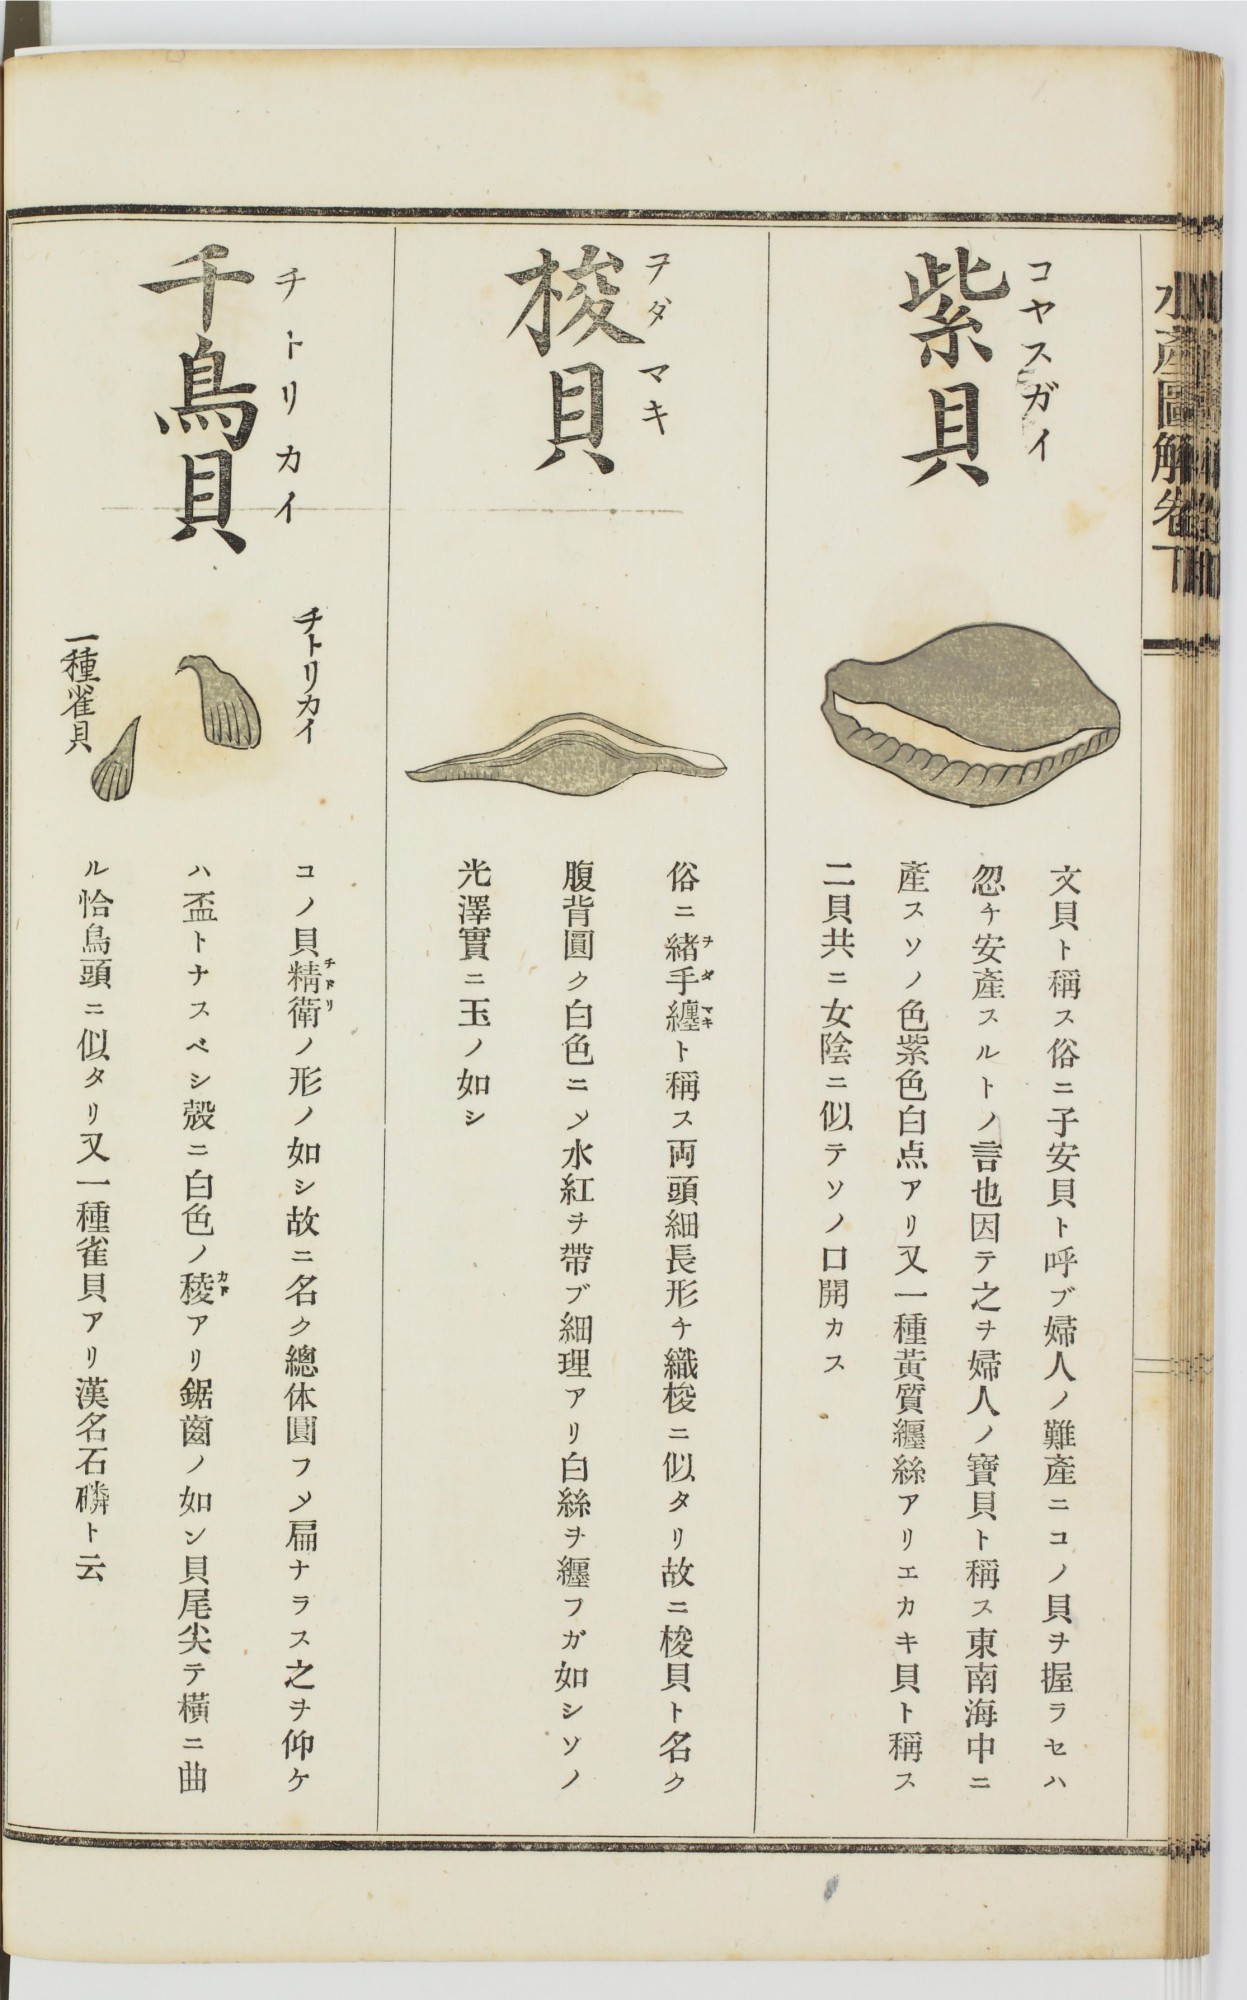 水產圖解卷下
紫貝
コヤスガイ
文貝ト稱ス俗ニ子安貝ト呼ブ婦人ノ難產ニコノ貝ヲ握ラセハ
忽チ安產スルトノ言也因テ之ヲ婦人ノ寶貝ト稱ス東南海中ニ
產スソノ色紫色白点アリ又一種黃質纒絲アリエカキ貝ト稱ス
二貝共ニ女陰ニ似テソノ口開カス
梭貝
ヲダマキ
俗ニ緖手纒ト稱ス両頭細長形チ織梭ニ似タリ故ニ梭貝ト名ク
ヲダマキ
腹背圓ク白色ニ〆水紅ヲ帶ブ細理アリ白絲ヲ纒フガ如シソノ
光澤實ニ玉ノ如シ
千鳥貝
チトリカイ
チトリカイ
一種雀貝
コノ貝精衛ノ形ノ如シ故ニ名ク總体圓フ〆扁ナラス之ヲ仰ケ
チドリ
ハ盃トナスベシ殼ニ白色ノ稜アリ鋸齒ノ如ン貝尾尖テ橫ニ曲
カド
ル恰鳥頭ニ似タリ又一種雀貝アリ漢名石磷ト云